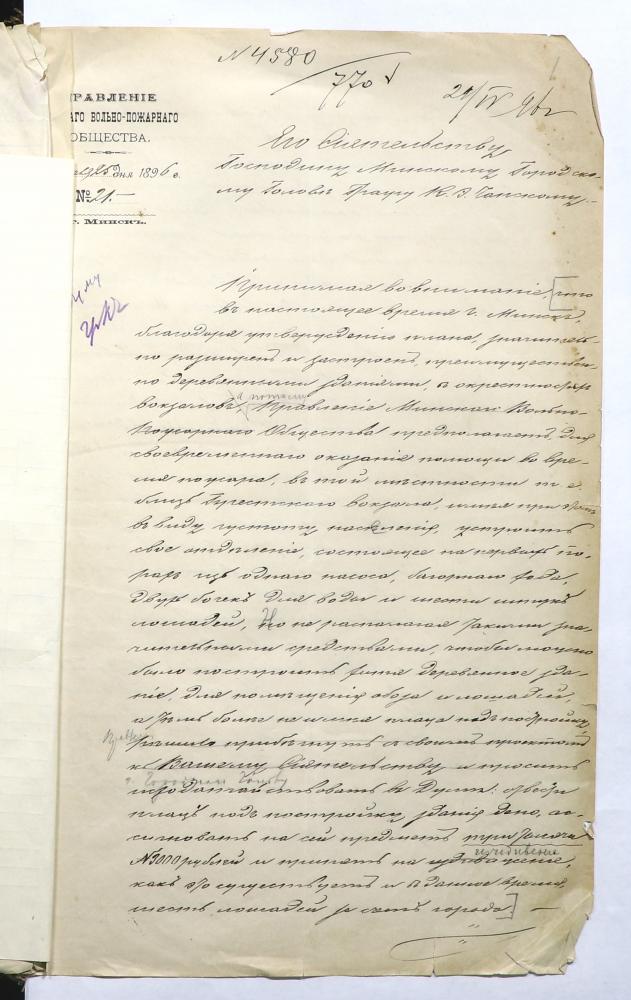 N 4580
770
29/IV 96 г
РАВЛЕНІЕ
АГО ВОЛЬНО-ПОЖАРНАГО
ОБЩЕСТВА.
25 дня 1896 г.
№ 21.—
г. Минскъ.
Его Сіятельству
Господину Минскому Городско-
му Головѣ Графу К. Э. Чапскому.
Принимая во вниманіе, [что
въ настоящее время г. Минскъ,
благодаря утвержденію плана, значитель-
но разширенъ и застроенъ, преимуществен-
но деревянными зданіями, въ окрестностяхъ
вокзаловъ, а потому Правленіе Минскаго Вольно-
Пожарнаго Общества предполагаетъ, для
своевременнаго оказанія помощи во вре-
мя пожара, въ той мѣстности т. е.
близъ Брестскаго вокзала, имѣя при этомъ
въ виду густоту населенія, устроить
свое отдѣленіе, состоящее на первыхъ по-
рахъ изъ одного насоса, багорнаго хода,
двухъ бочекъ для воды и шести штукъ
лошадей, Но не располагая такими зна-
чительными средствами, чтобы можно
было построить хотя деревянное зда-
ніе, для помѣщенія обоза и лошадей
а тѣмъ болѣе не имѣя плаца подъ постройку,
рѣшило прибѣгнуть съ своимъ проектомъ
къ Вашему Сіятельству и просить
г. Городскому Головѣ
исходатайствовать въ Думѣ: отвести
плацъ подъ постройку зданія депо, ас-
сигновать на сей предметъ три тысячи
№3000 рублей и принять на
иждивеніе
какъ это существуетъ и въ данное время,
шесть лошадей за счетъ города]. —